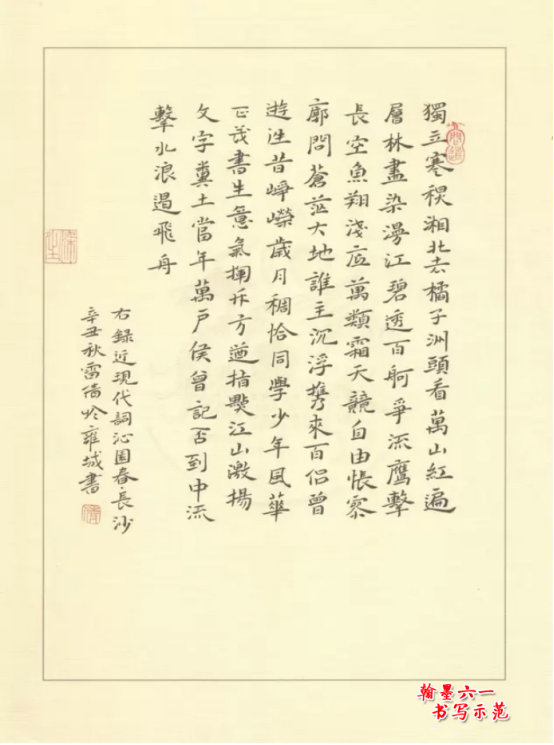 獨立寒秋湘北去橘子洲頭看萬山紅遍
層林盡染漫江碧透百舸爭流鷹擊
長空魚翔淺底萬類霜天競自由悵寥
廓問蒼茫大地誰主沉浮攜來百侶曾
遊往昔崢嶸歲月稠恰同學少年風華
正茂書生意氣揮斥方遒指點江山激揚
文字糞土當年萬戶侯曾記否到中流
擊水浪遏飛舟
右錄近現代詞沁園春長沙
辛丑秋雷倩於雍城書
翰墨六一
书写示范